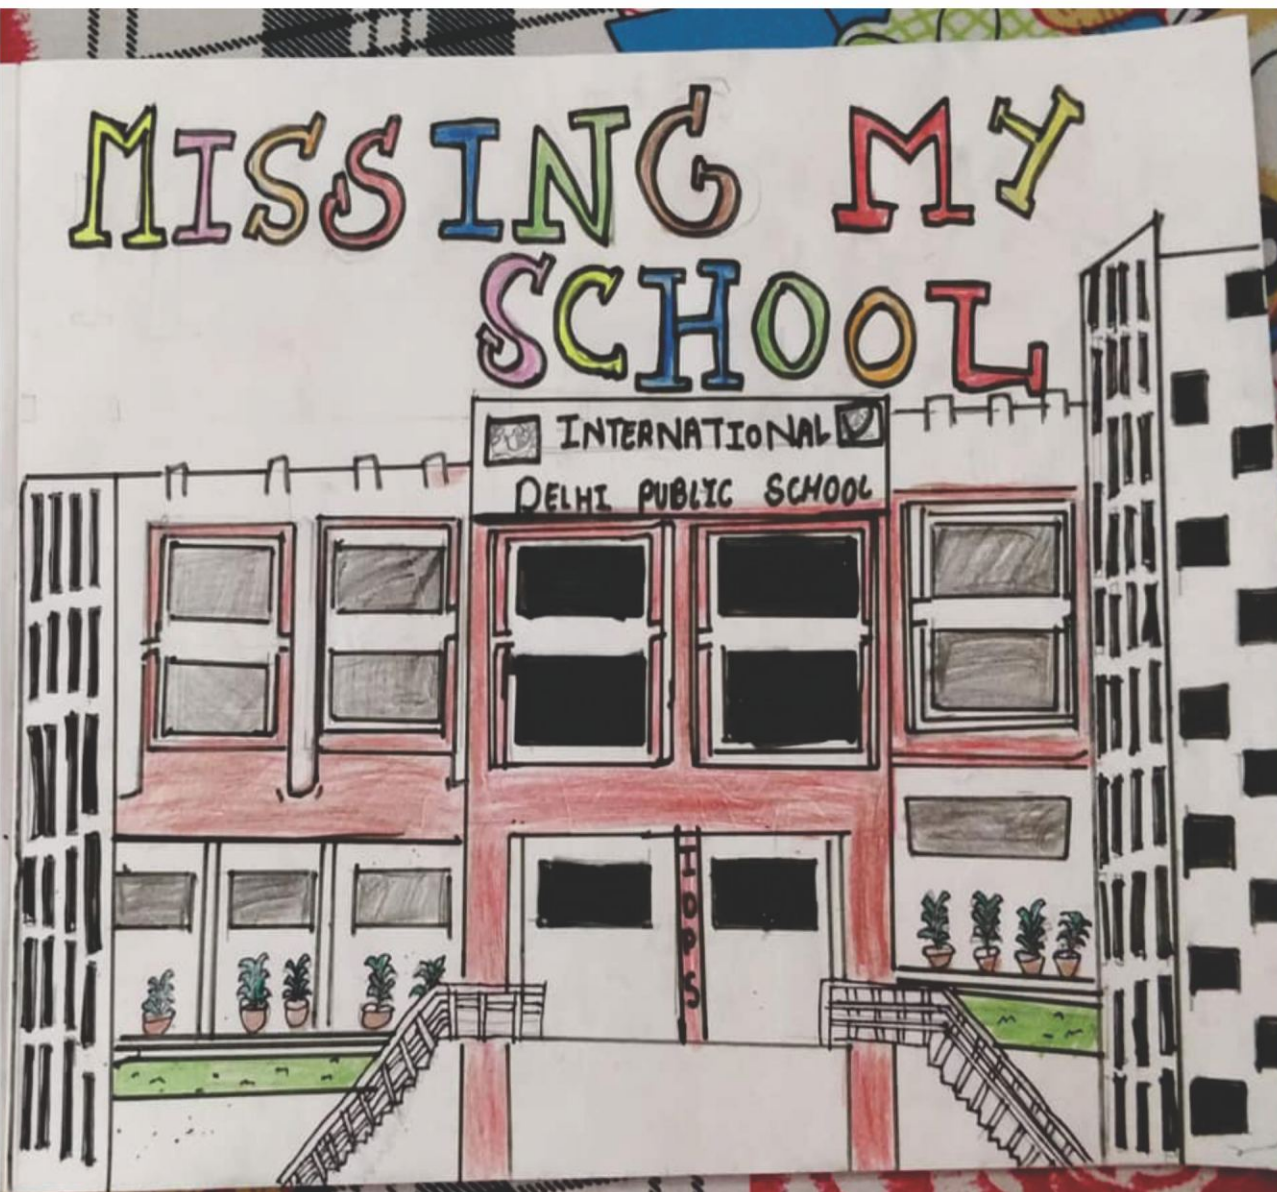 MISSING MY
SCHOOL
INTERNATIONAL
DELHI PUBLIC SCHOOL
IDPS